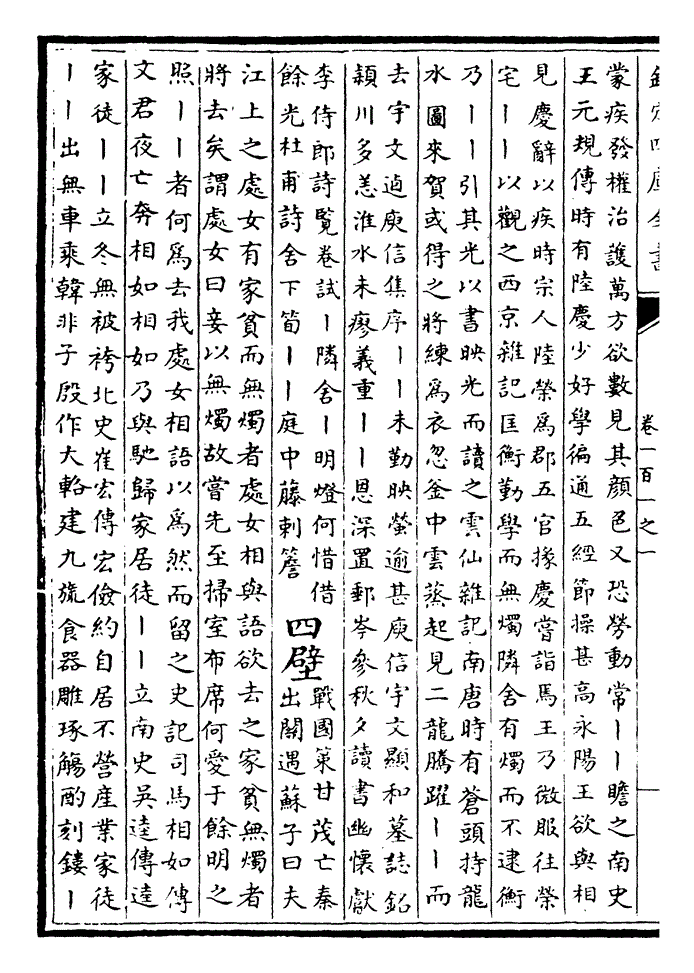 欽定四庫全書
卷一百一之一
蒙疾發權治護萬方欲數見其顔色又恐勞動常丨丨瞻之南史
王元規傳時有陸慶少好學徧通五經節操甚高永陽王欲與相
見慶辭以疾時宗人陸榮爲郡五官掾慶嘗詣焉王乃微服往榮
宅丨丨以觀之西京雜記匡衡勤學而無燭隣舍有燭而不逮衡
乃丨丨引其光以書映光而讀之雲仙雜記南唐時有蒼頭持龍
水圖來賀或得之將練爲衣忽釜中雲蒸起見二龍騰躍丨丨而
去宇文逌庾信集序丨丨未勤映螢逾甚庾信宇文顯和墓誌銘
潁川多恙淮水未瘳義重丨丨恩深置郵岑參秋夕讀書幽懷獻
李侍郎詩覽卷試丨隣舍丨明燈何惜借
餘光杜甫詩舍下筍丨丨庭中藤刺簷
四壁
戰國策甘茂亡秦
出關遇蘇子曰夫
江上之處女有家貧而無燭者處女相與語欲去之家貧無燭者
將去矣謂處女曰妾以無燭故嘗先至掃室布席何愛于餘明之
照丨丨者何爲去我處女相語以爲然而留之史記司馬相如傳
文君夜亡奔相如相如乃與馳歸家居徒丨丨立南史吳逵傳逵
家徒丨丨立冬無被袴北史崔宏傳宏儉約自居不營産業家徒
丨丨出無車乘韓非子殷作大輅建九旒食器雕琢觴酌刻鏤丨